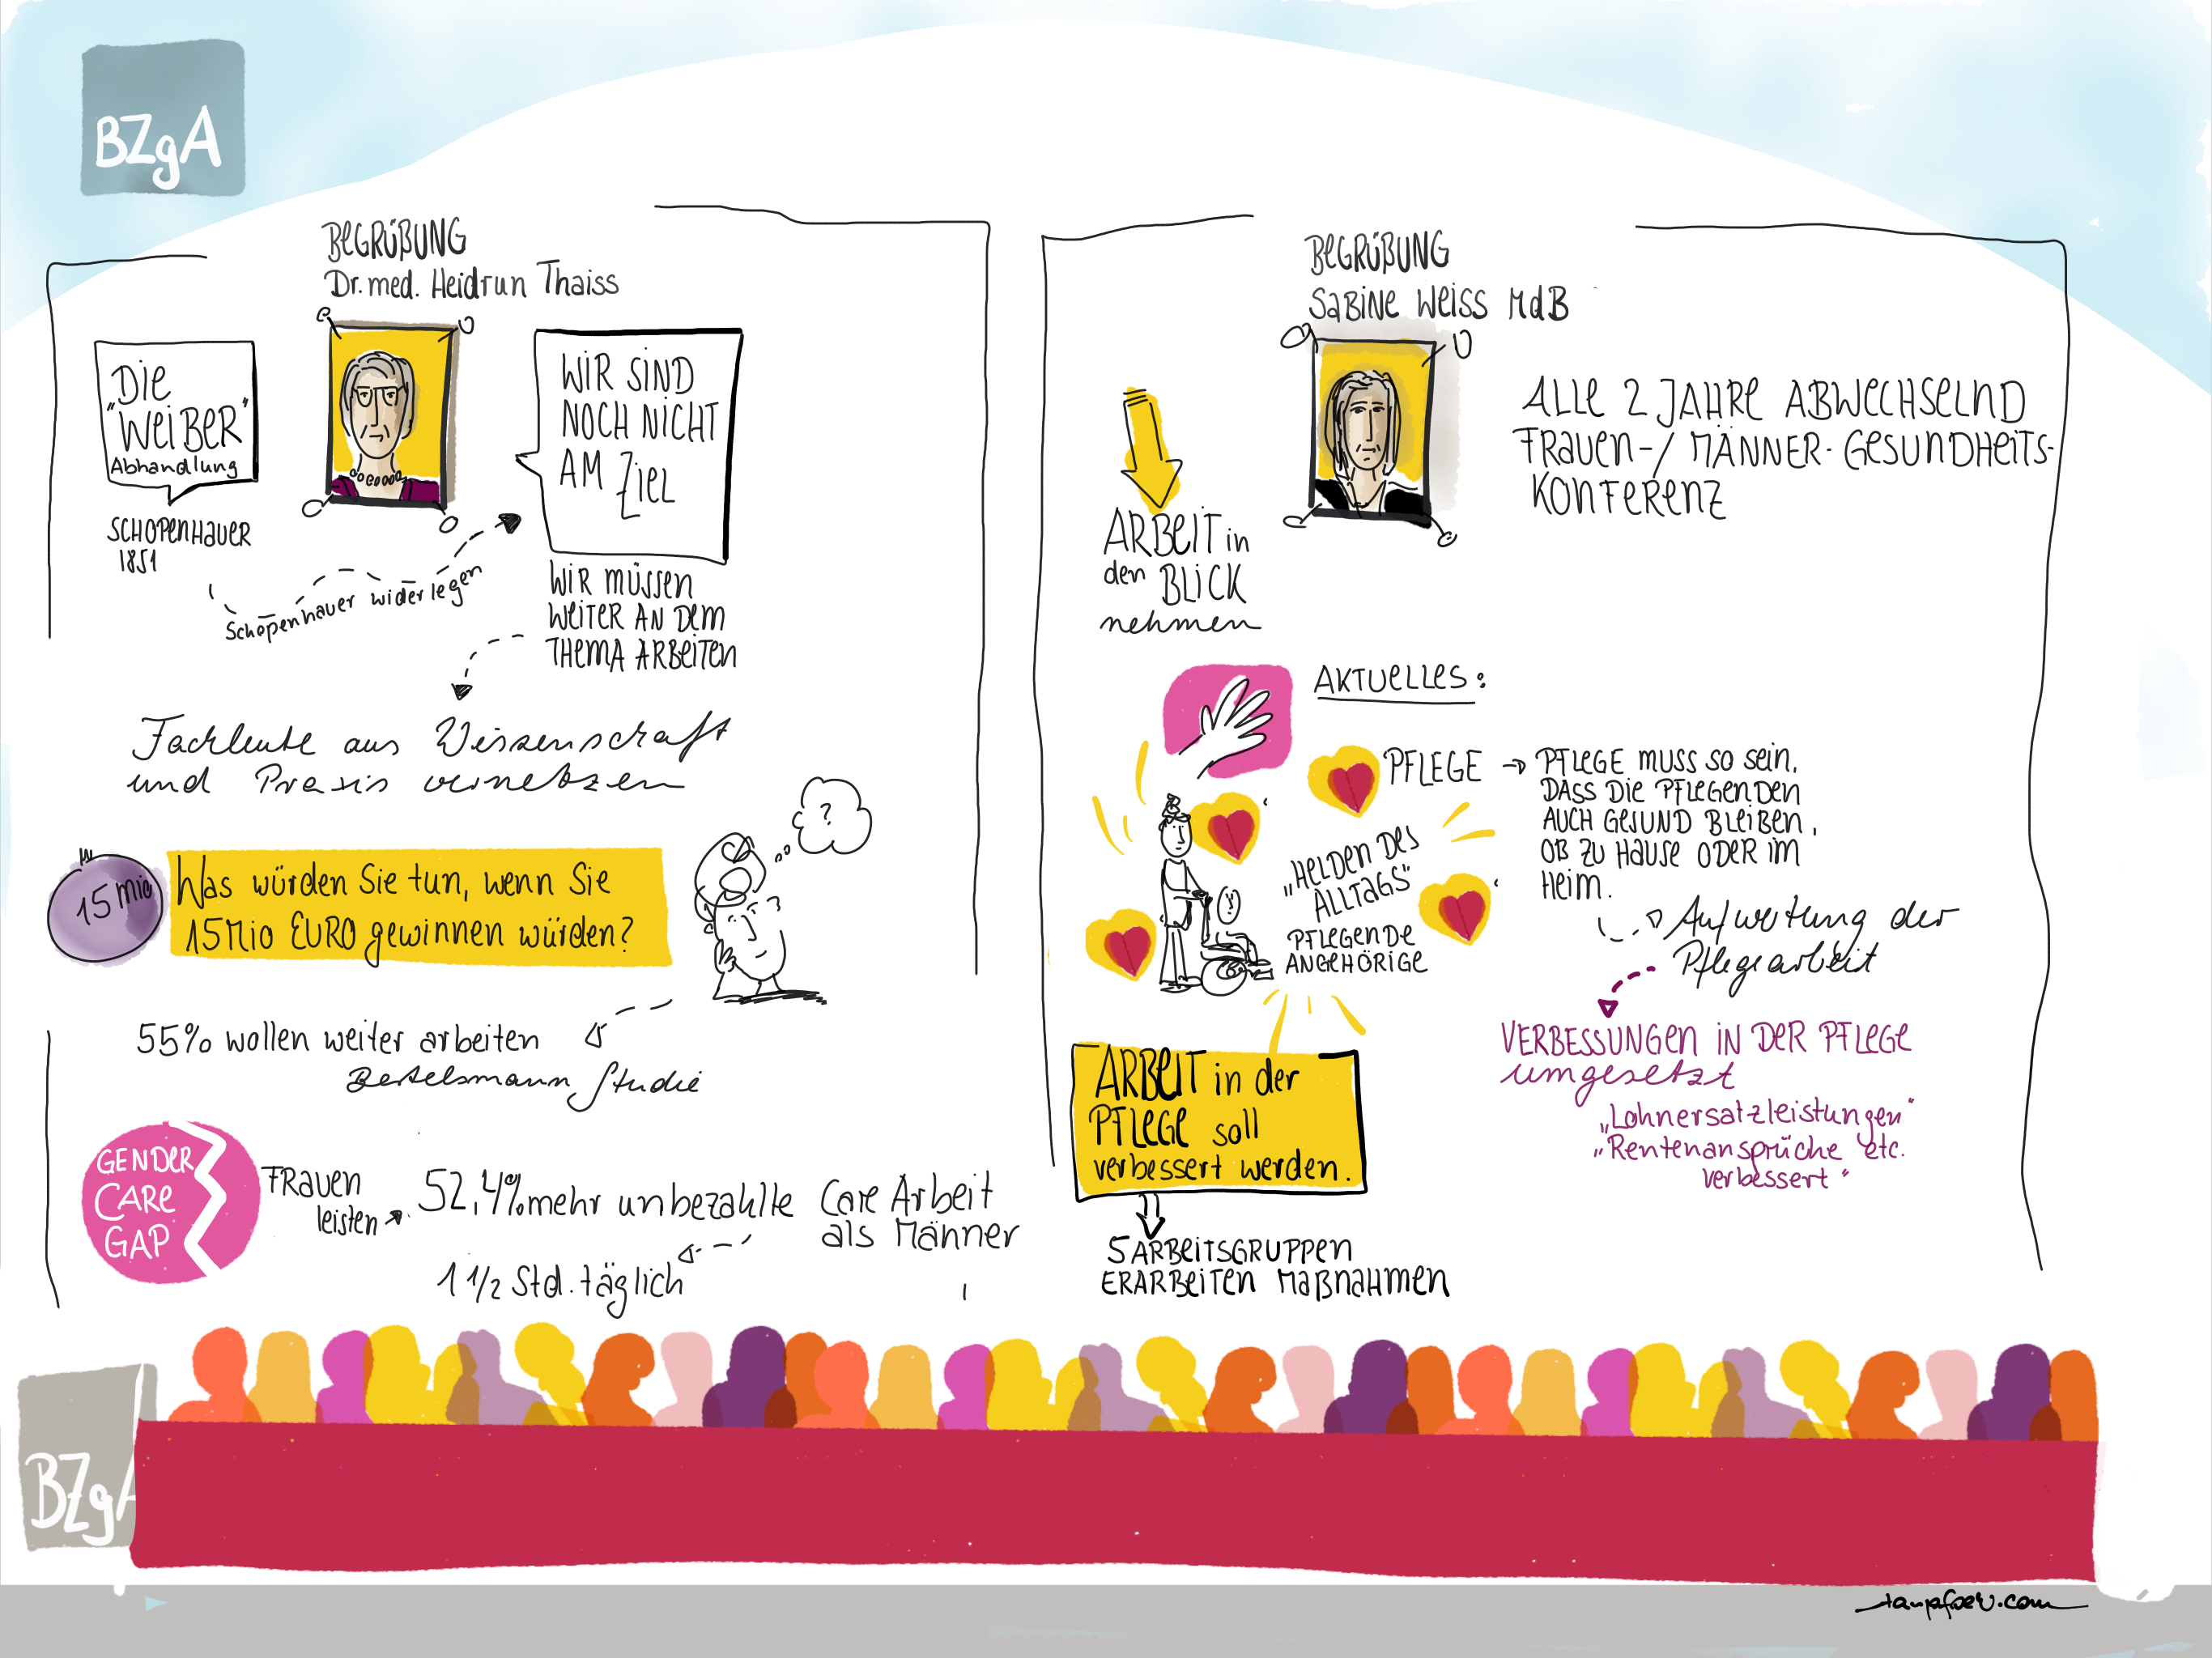 BZgA
BEGRÜßUNG
Dr. med. Heidrun Thaiss
DIE
"WEIBER"
Abhandlung
SCHOPENHAUER
1851
Schopenhauer widerlegen
WIR SIND
NOCH NICHT
AM ZIEL
WIR MÜSSEN
WEITER AN DEM
THEMA ARBEITEN
Fachleute aus Wissenschaft
und Praxis vernetzen
15 Mio
Was würden Sie tun, wenn Sie
15 Mio EURO gewinnen würden?
?
55% wollen weiter arbeiten
Bertelsmann Studie
GENDER
CARE
GAP
FRAUEN
leisten
52,4% mehr unbezahlte Care Arbeit
als Männer
1 1/2 Std. täglich
BEGRÜßUNG
SABINE WEISS MdB
ALLE 2 JAHRE ABWECHSELND
FRAUEN-/MÄNNER-GESUNDHEITS-
KONFERENZ
ARBEIT in
den BLICK
nehmen
AKTUELLES:
PFLEGE
PFLEGE MUSS SO SEIN,
DASS DIE PFLEGENDEN
AUCH GESUND BLEIBEN,
OB ZU HAUSE ODER IM
HEIM.
„HELDEN DES
ALLTAGS"
PFLEGENDE
ANGEHÖRIGE
Aufwertung der
Pflegearbeit
VERBESSUNGEN IN DER PFLEGE
umgesetzt
„Lohnersatzleistungen"
„Rentenansprüche etc.
verbessert"
ARBEIT in der
PFLEGE soll
verbessert werden.
5 ARBEITSGRUPPEN
ERARBEITEN MAßNAHMEN
BZgA